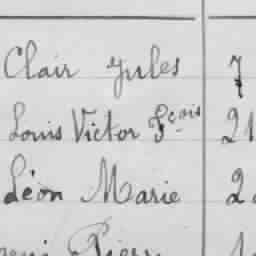 Clair Jules 7
Louis Victor Fçois 21
Léon Marie 2